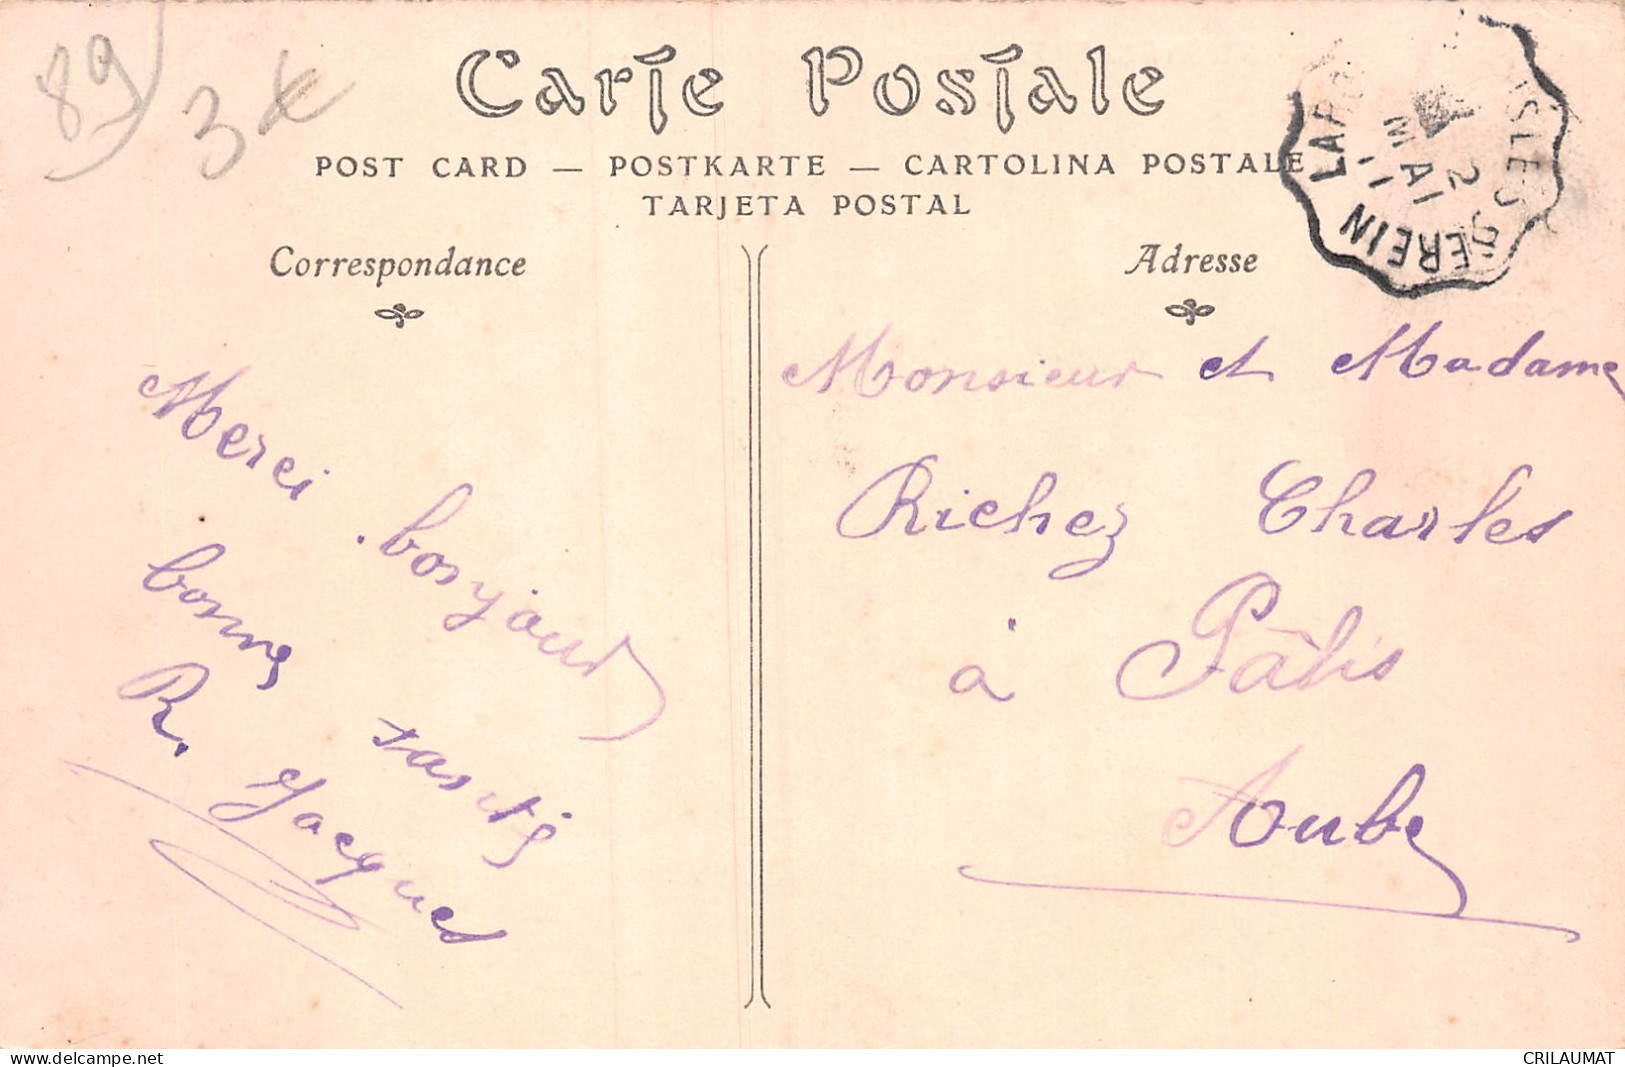 89
3
Carte Postale
POST CARD — POSTKARTE — CARTOLINA POSTALE
TARJETA POSTAL
ISLE S SEREIN
2
MAI
11
Correspondance
Adresse
Merci bonjour
bonne santé
R. Jacques
Monsieur et Madame
Richez Charles
à Pâlis
Aube
delcampe.net
CRILAUMAT